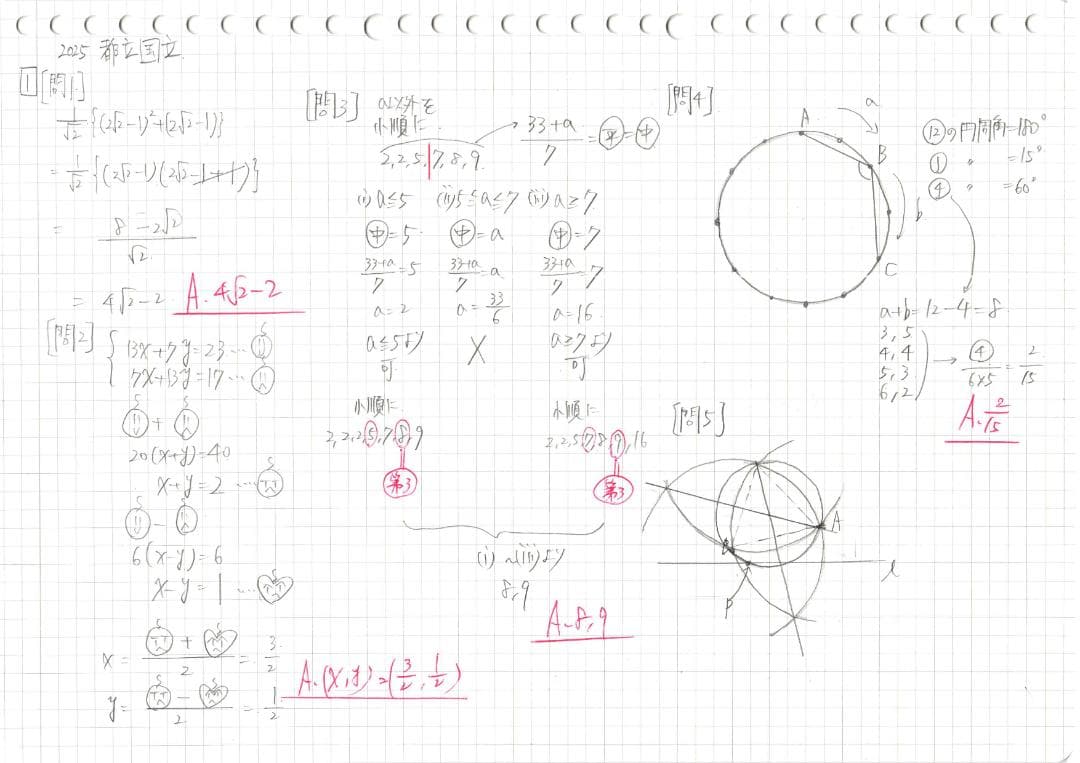 2025 都立国立
1 [問1]
1/√2 {(2√2-1)²+(2√2-1)}
= 1/√2 {(2√2-1)(2√2-1+1)}
= 8-2√2 / √2
= 4√2-2 A. 4√2-2
[問2]
13x+7y=23 … ①
7x+13y=17 …
+
20(x+y)=40
x+y=2 …
-
6(x-y)=6
x-y=1 …
x = + / 2 = 3/2
y = - / 2 = 1/2
A. (x,y)=(3/2, 1/2)
[問3]
a以外を
小順に
2,2,5,7,8,9
33+a / 7 = 平 = 中
(i) a≦5 (ii) 5≦a≦7 (iii) a≧7
中=5 中=a 中=7
33+a / 7 = 5 33+a / 7 = a 33+a / 7 = 7
a=2 a=33/6 a=16
a≦5より X a≧7より
可 可
小順に 小順に
2,2,2,5,7,8,9 2,2,5,7,8,9,16
第3 第3
(i)~(iii)より
8,9
A. 8,9
[問4]
a
A
B
b
C
⑫の円周角=180°
① 〃 =15°
④ 〃 =60°
a+b=12-4=8
3,5
4,4
5,3
6,2
→ ④ / 6×5 = 2/15
A. 2/15
[問5]
A
B
P
l